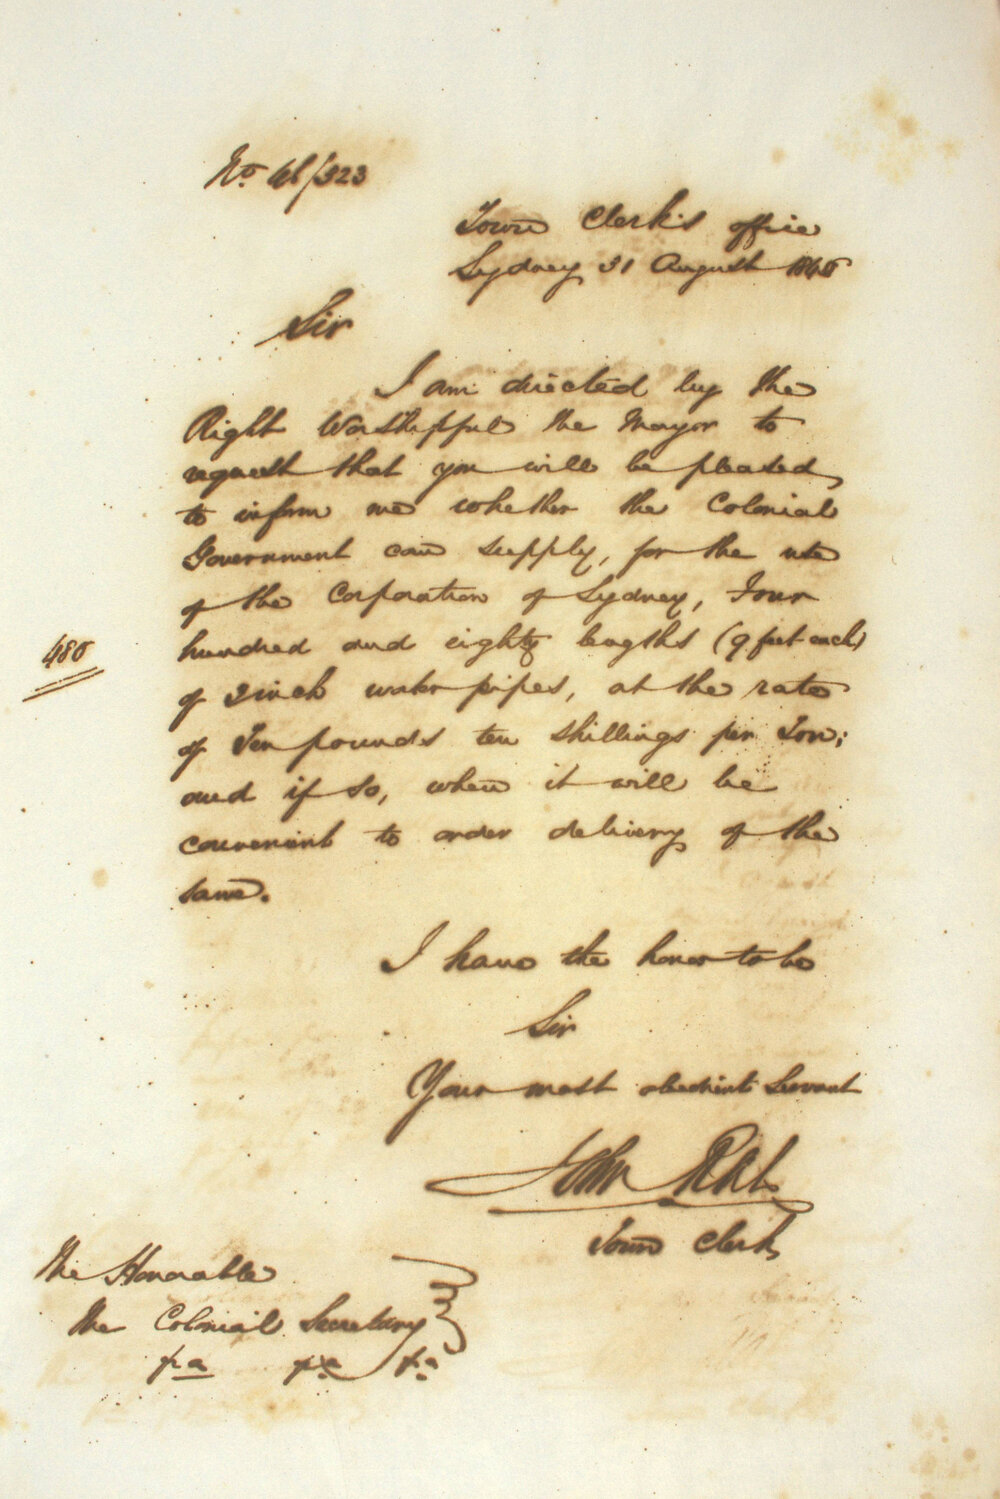 No. 46/323
Town Clerk's office
Sydney 31 August 1846
Sir
I am directed by the
Right Worshipful the Mayor to
request that you will be pleased
to inform me whether the Colonial
Government can supply, for the use
of the Corporation of Sydney, Four
hundred and eighty lengths (9 feet each)
480
of 3 inch water pipes, at the rate
of Ten pounds ten shillings per Ton;
and if so, when it will be
convenient to order delivery of the
same.
I have the honor to be
Sir
Your most obedient Servant
John
Town Clerk
The Honorable
The Colonial Secretary